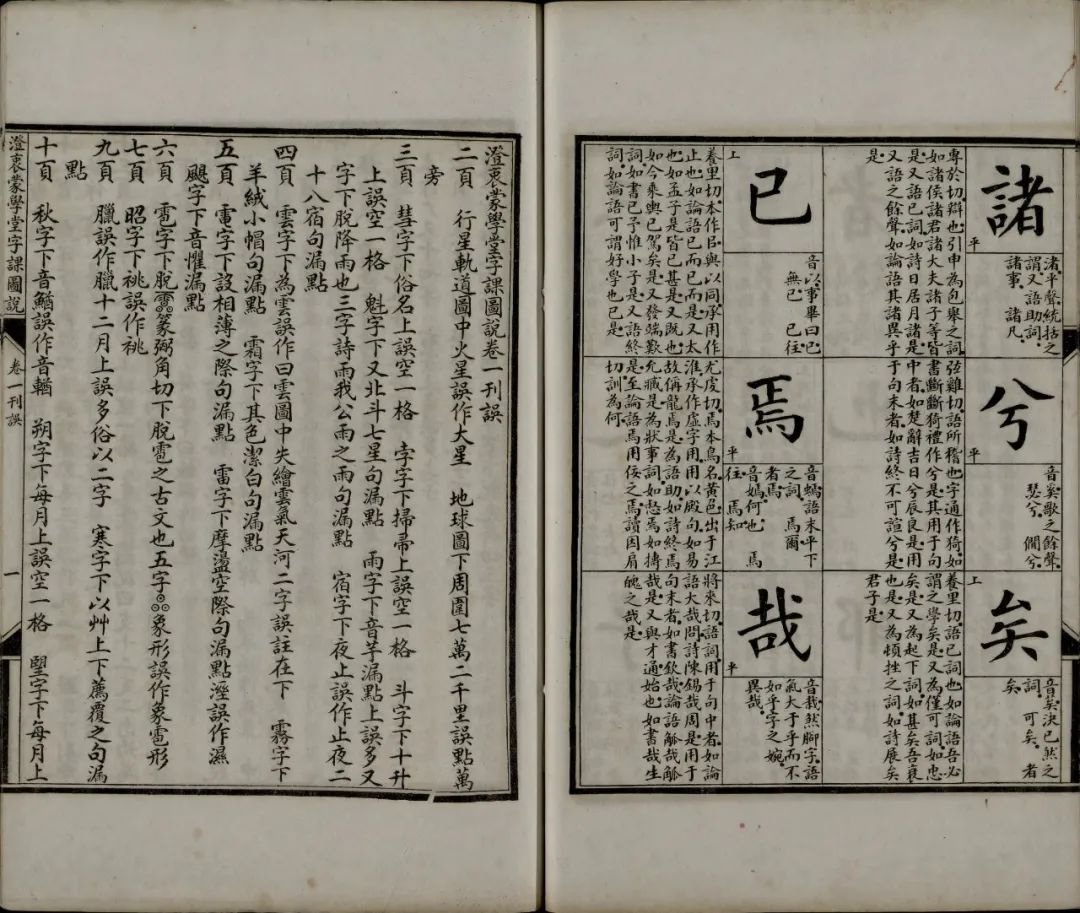 諸
平
諸平聲統括之
謂又語助詞
諸事 諸凡
專於切辯也引申為包舉之詞
如諸侯諸君諸大夫諸子等皆
是又語已詞如詩日居月諸是
又語之餘聲如論語其諸異乎
是
兮
平
音奚歌之餘聲
瑟兮 僩兮
弦雞切語所稽也字通作猗如
書斷斷猗禮作兮是其用于句
中者如楚辭吉日兮辰良是用
于句末者如詩終不可諠兮是
矣
上
決已然之
詞 可矣 者
矣
養里切語已詞也如論語吾必
謂之學矣是又為僅可詞如忠
矣是又為起下詞如甚矣吾衰
也是又為頓挫之詞如詩展矣
君子是
已
上
音以事畢曰已
無已 已往
養里切本作㠯與以同承用作
止也如論語已而已而是又太
也如孟子是皆已甚是又既也
如今乘輿已駕矣是又發端歎
詞如書已予惟小子是又語終
詞如論語可謂好學也已是
焉
平
語末平下
之詞 焉爾
者焉
音嫣何也 焉
往 焉知
尤虔切焉本鳥名黃色出于江
淮承作虛字用用以殿句如易
故稱龍焉是為語助如詩終焉
允臧是為狀事詞如惄焉如擣
是至論語焉用佞之焉讀因肩
切訓為何
哉
平
然腳字語
氣大于乎而不
如乎字之婉
異哉
將來切語詞用于句中者如論
語大哉問詩陳錫哉周是用于
句末者如書欽哉論語觚哉觚
哉是又與才通始也如書哉生
魄之哉是
澄衷蒙學堂字課圖說卷一刊誤
二頁 行星軌道圖中火星誤作大星 地球圖下周圍七萬二千里誤點萬
旁
三頁 彗字下俗名上誤空一格 孛字下掃帚上誤空一格 斗字下十升
上誤空一格 魁字下又北斗七星句漏點 雨字下音羊漏點上誤多又
字下脫降雨也三字詩雨我公雨之雨句漏點 宿字下夜止誤作止夜二
十八宿句漏點
四頁 雲字下為雲誤作曰雲圖中失繪雲氣天河二字誤註在下 霧字下
羊絨小帽句漏點 霜字下其色潔白句漏點
五頁 電字下設相薄之際句漏點 雷字下摩盪空際句漏點溼誤作濕
颶字下音懼漏點
六頁 雹字下脫篆弼角切下脫雹之古文也五字象形誤作象雹形
七頁 昭字下祧誤作祧
九頁 臘誤作臘十二月上誤多俗以二字 寒字下以艸上下薦覆之句漏
點
十頁 秋字下音鰌誤作音輶 朔字下每月上誤空一格 朢字下每月上
澄衷蒙學堂字課圖說
卷一刊誤
一